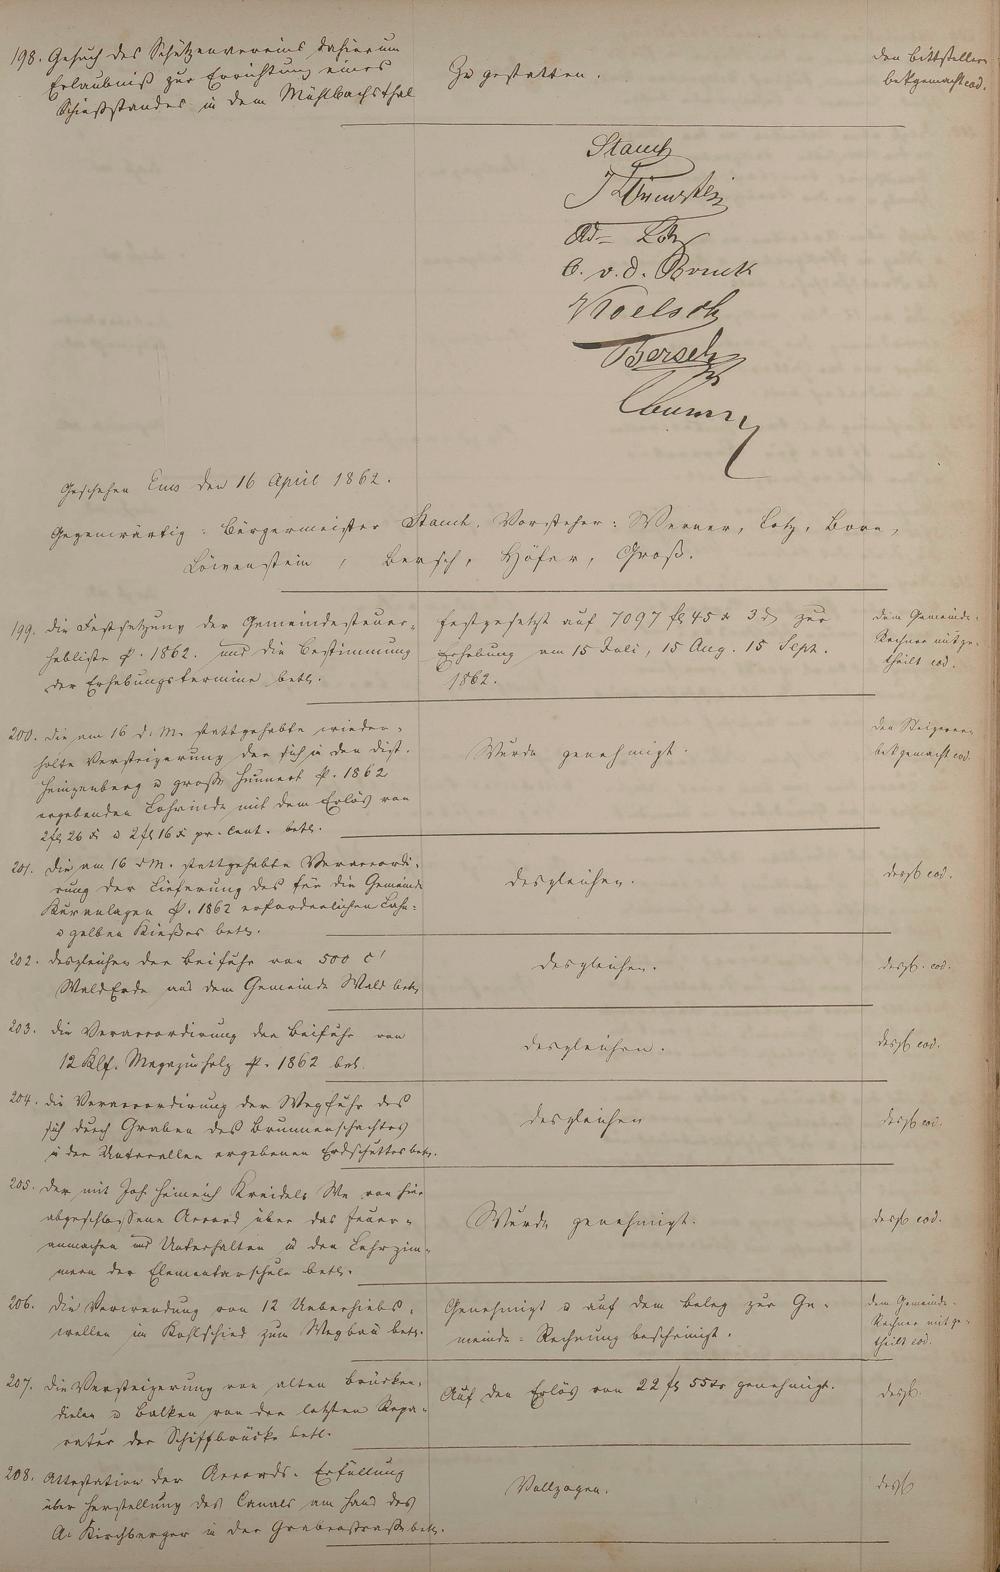 198. Gesuch des Schützenvereins dahier um
Erlaubniß zur Errichtung eines
Schießstandes in dem Mühlbachsthal
Zu gestatten.
den Bittstellern
bekgemacht eod.
Stamm
J Löwenstein
Ad= Lotz
C. v. d. Bruck
Bersch
Geschehen Ems den 16 April 1862.
Gegenwärtig: Bürgermeister Stamm. Vorsteher: Werner, Lotz, Born,
Löwenstein, Bersch, Höfer, Groß.
199. die Festsetzung der Gemeindesteuer-
hebliste p. 1862. und die Bestimmung
der Erhebungstermine betr.
festgesetzt auf 7097 fl 45 x 3 d zur
Erhebung am 15 Juli, 15 Aug. 15 Sept.
1862.
dem Gemeinde-
Rechner mitge-
theilt eod.
200. die am 16 d. M. stattgehabte wieder-
holte Versteigerung der sich in den Dist.
Heinzenberg u große Hünert p. 1862
ergebenden Lohrinde mit dem Erlös von
2 fl 26 x u 2 fl 16 x pr. Cent. betr.
Wurde genehmigt.
den Steigerern
bekgemacht eod.
201. die am 16 d M. stattgehabte Veraccordi-
rung der Lieferung des für die Gemeinde
Kuranlagen p. 1862 erforderlichen Lahn-
u gelben Kießes betr.
desgleichen.
desgl. eod.
202. desgleichen der Beifuhr von 500 c'
Wald Erde aus dem Gemeinde Wald betr.
desgleichen.
desgl. eod.
203. die Veraccordirung der Beifuhr von
12 Klf. Magazinholz p. 1862 betr.
desgleichen.
desgl. eod.
204. die Veraccordirung der Wegfuhr des
sich durch Graben des Brunnenschachtes
in der Unterallee ergebenen Erdschuttes betr.
desgleichen
desgl. eod.
205. der mit Joh. Heinrich Kreidels We von hier
abgeschlossene Accord über das Feuer-
anmachen und Unterhalten in den Lehrzim-
mern der Elementarschule betr.
Wurde genehmigt.
desgl. eod.
206. die Verwendung von 12 Ueberhiebs-
wellen im Kohlschied zum Wegbau betr.
Genehmigt u auf dem Beleg zur Ge-
meinde-Rechnung bescheinigt.
dem Gemeinde-
Rechner mitge-
theilt eod.
207. die Versteigerung von alten Brücken-
dielen u Balken von der letzten Repa-
ratur der Schiffbrücke betr.
Auf den Erlös von 22 fl 55 xr genehmigt.
desgl.
208. Attestation der Accords-Erfüllung
über Herstellung des Canals am Haus des
A. Kirchberger in der Grabenstraße betr.
Vollzogen.
desgl